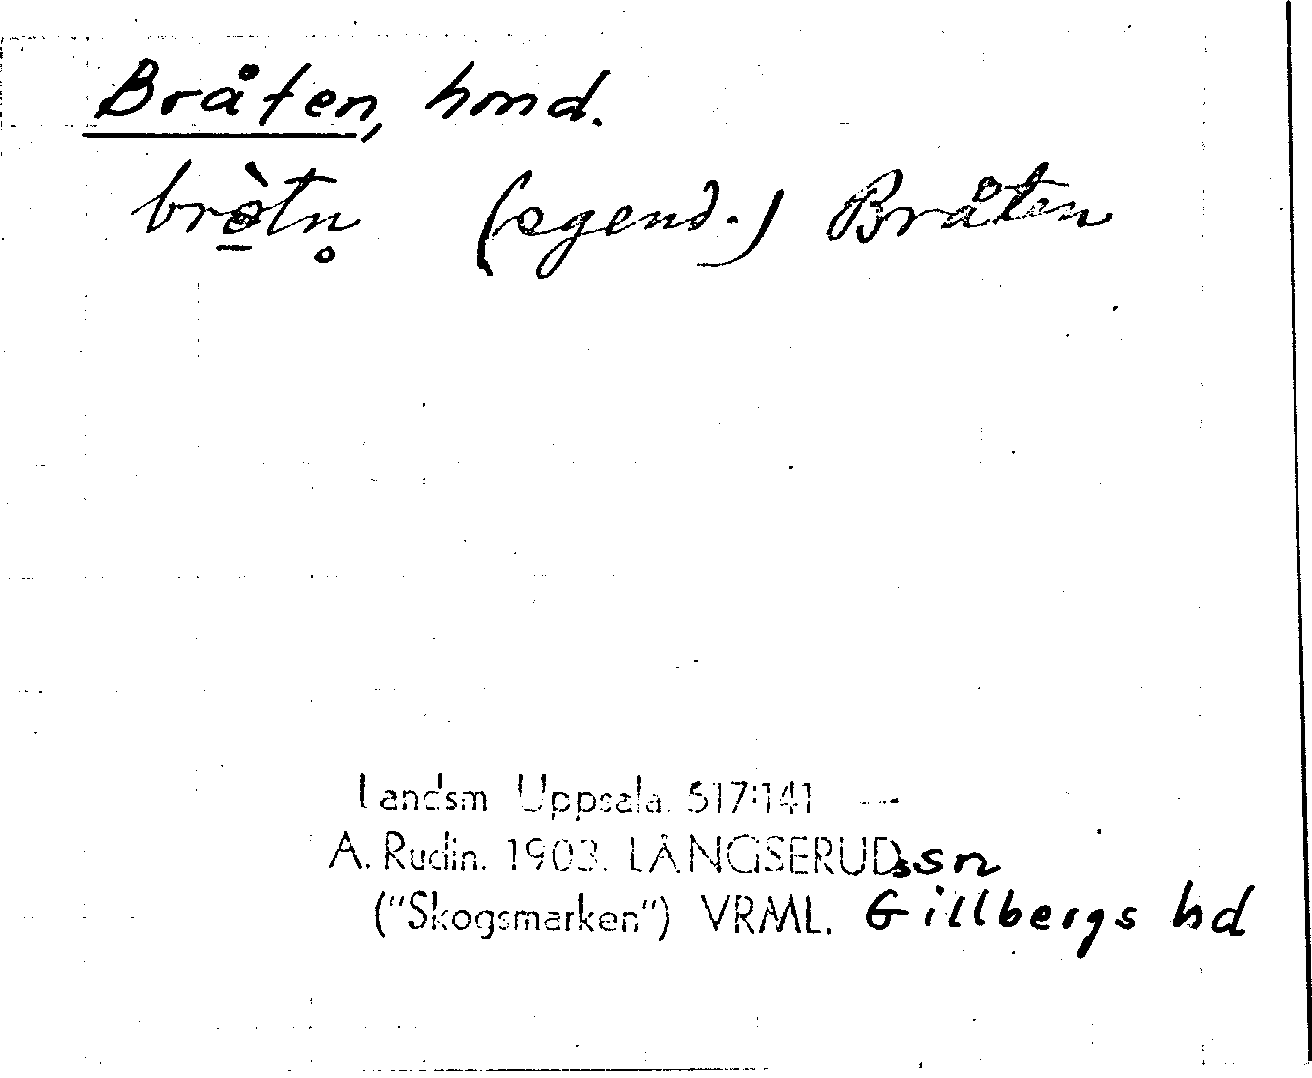 Bråten, hmd.
brə̀tn̥ (egend.) Bråten
Landsm Uppsala. 517:141
A. Rudin. 1903. LÅNGSERUDssn
("Skogsmarken") VRML. Gillbergs hd